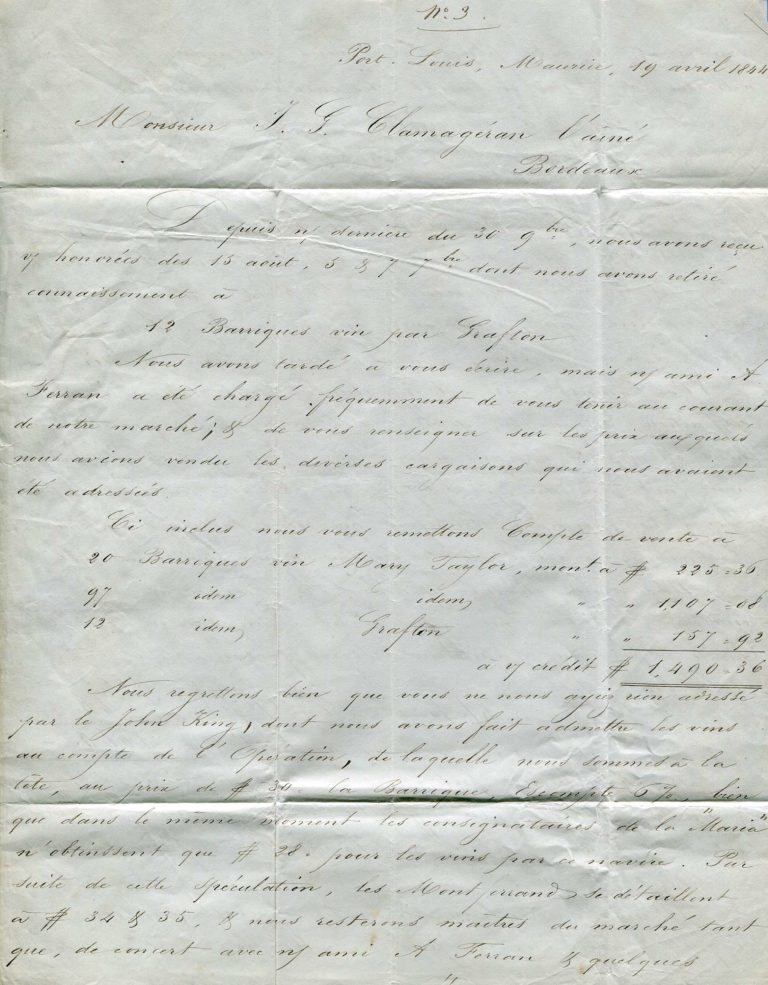 N°. 3.
Port-Louis, Maurice, 19 avril 1844
Monsieur J. G. Clamagéran l'aîné
Bordeaux
Depuis n/ dernière du 30 9bre, nous avons reçu
v/ honorées des 15 août, 5 & 7 7bre dont nous avons retiré
connaissement à
12 Barriques vin par Grafton
Nous avons tardé à vous écrire, mais n/ ami A
Ferran a été chargé fréquemment de vous tenir au courant
de notre marché; & de vous renseigner sur les prix auxquels
nous avions vendu les diverses cargaisons qui nous avaient
été adressées.
Ci inclus nous vous remettons Compte de vente à
20 Barriques vin Mary Taylor, mont. à $ 225=36
97 idem idem, " " 1,107=08
12 idem, Grafton " " 157=92
à v/ crédit $ 1,490=36
Nous regrettons bien que vous ne nous ayiez rien adressé
par le John King, dont nous avons fait admettre les vins
au compte de l'Opération, de laquelle nous sommes à la
tête, au prix de $ 30. la Barrique, Escompte 6%, bien
que dans le même moment les consignataires de la "Maria"
n'obtinssent que $ 28. pour les vins par ce navire. Par
suite de cette spéculation, les Montferrand se détaillent
à $ 34 & 35, & nous resterons maîtres du marché tant
que, de concert avec n/ ami A Ferran & quelques